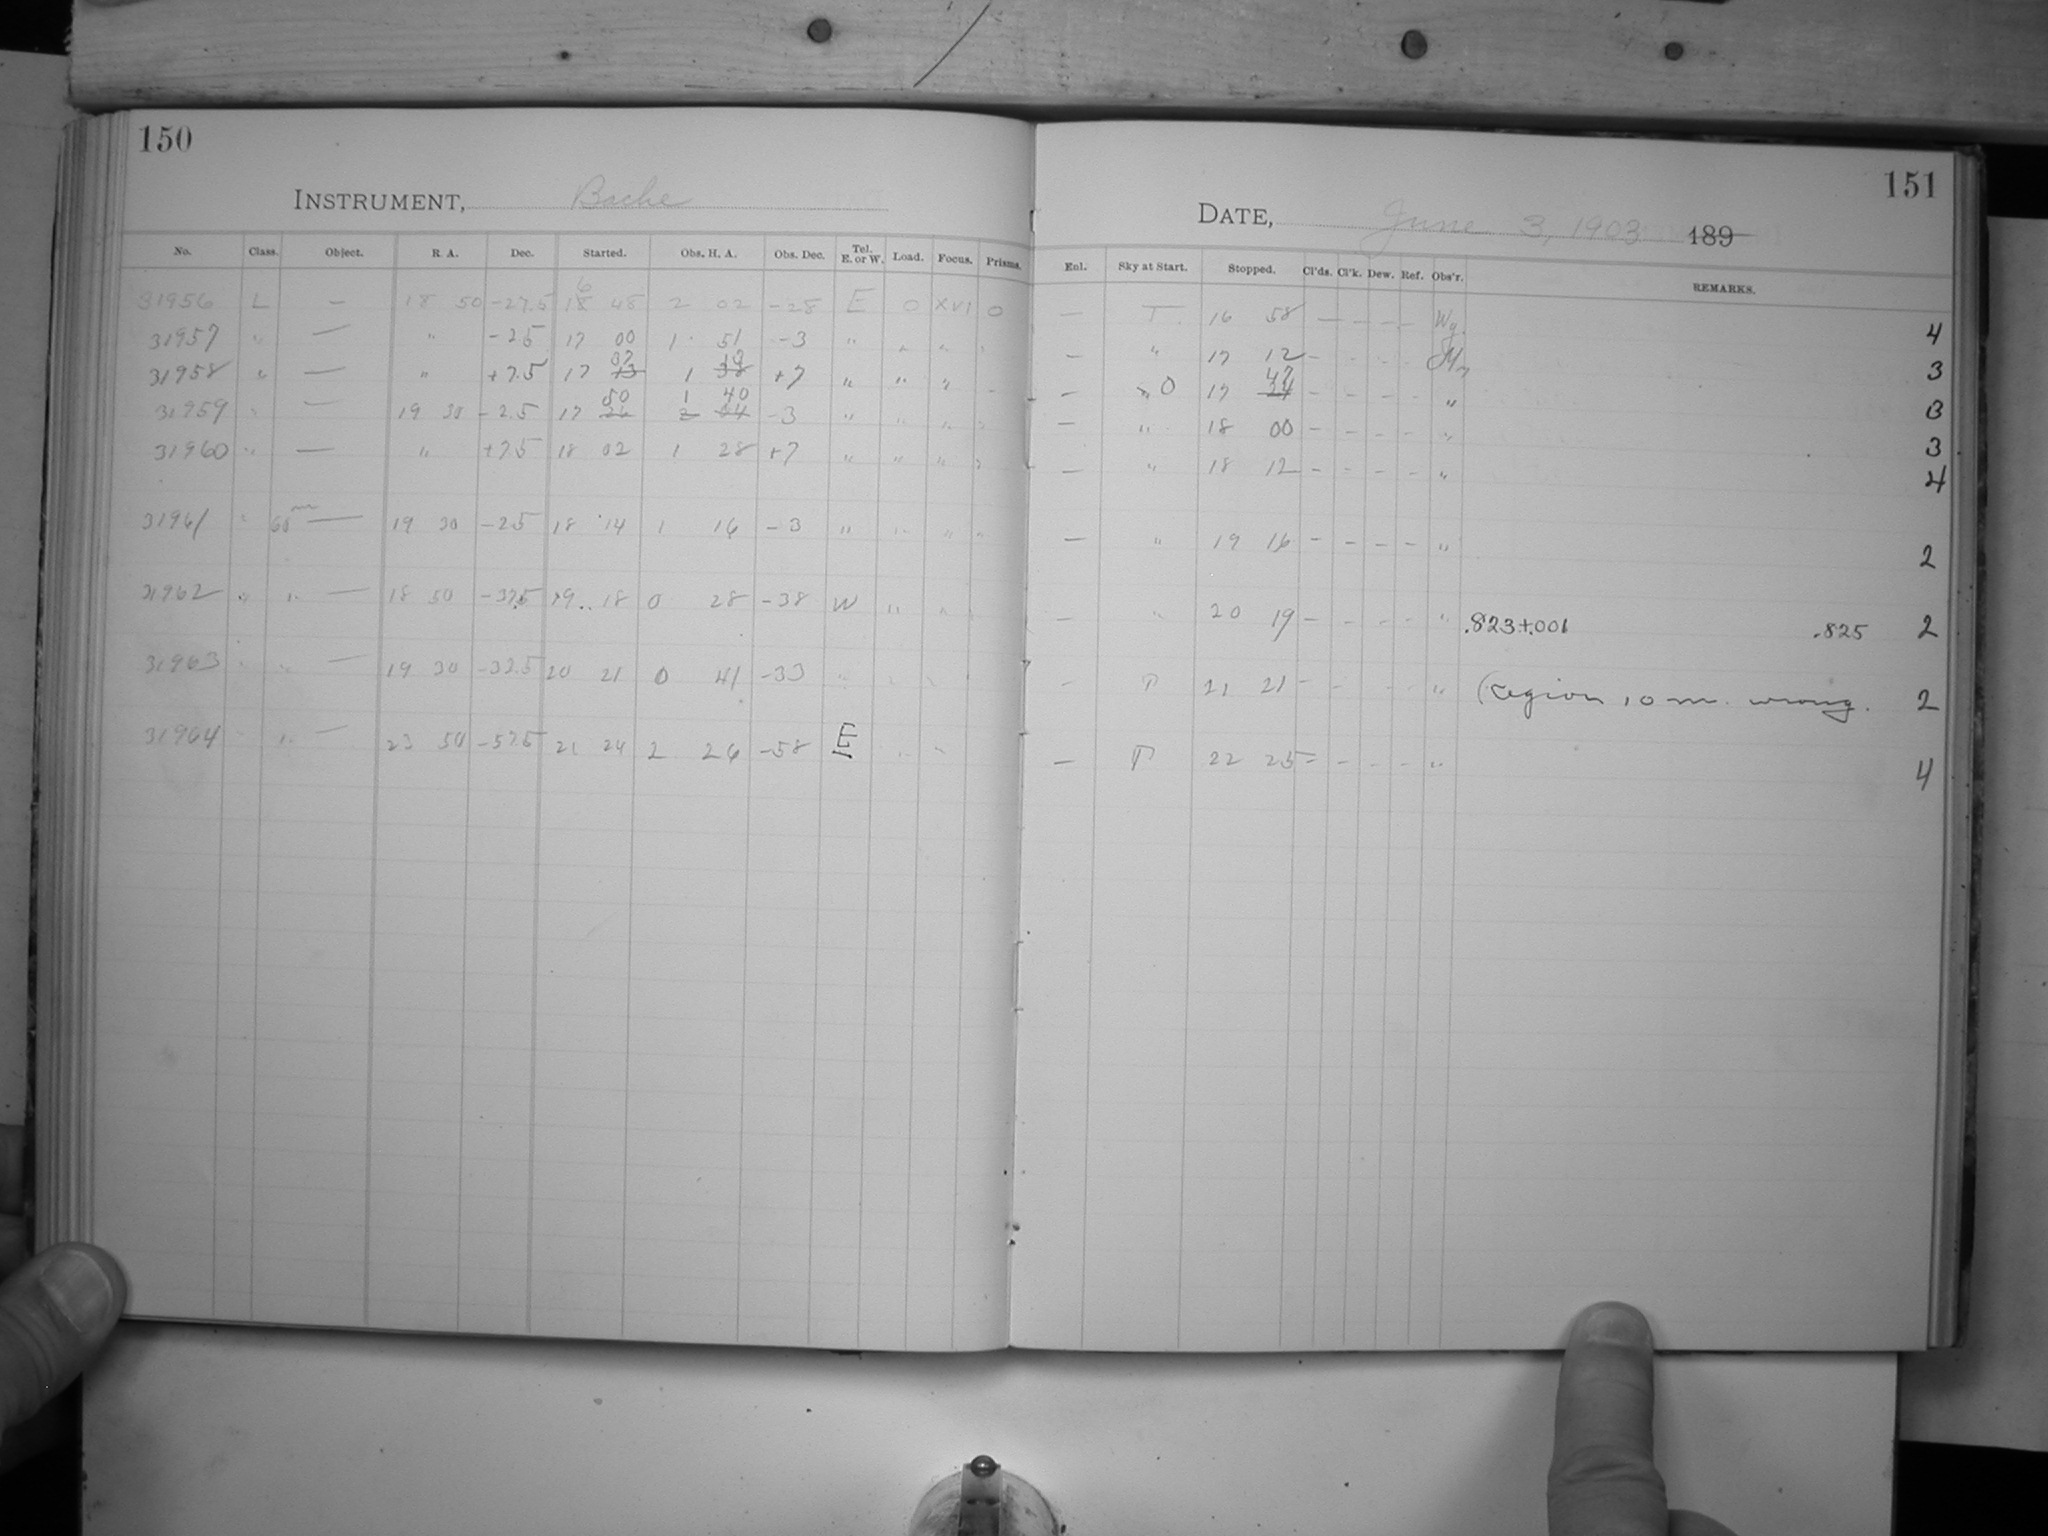 150
INSTRUMENT, Bache
No. Class. Object. R. A. Dec. Started. Obs. H. A. Obs. Dec. Tel. E. or W. Load. Focus. Prisms.
31956 L — 18 50 -27.5 16 48 2 02 -28 E 0 XVI 0
31957 " — " -2.5 17 00 1 51 -3 " " " "
31958 " — " +7.5 17 13 1 38 +7 " " " -
31959 " — 19 30 -2.5 17 50 1 40 -3 " " " "
31960 " — " +7.5 18 02 1 28 +7 " " " "
31961 " 60m — 19 30 -2.5 18 14 1 16 -3 " " " "
31962 " " — 18 50 -37.5 19 18 0 28 -38 W " " "
31963 " " — 19 30 -32.5 20 21 0 41 -33 " " "
31964 " " — 23 50 -57.5 21 24 2 26 -58 E " "
151
DATE, June 3, 1903 189
Enl. Sky at Start. Stopped. Cl'ds. Cl'k. Dew. Ref. Obs'r. REMARKS.
— T. 16 58 — - - - Wg. 4
— " 17 12 - - - - 3
— " 0 17 47 - - - - " 3
— " 18 00 - - - - " 3
— " 18 12 - - - - " 4
— " 19 16 - - - - " 2
— " 20 19 - - - - " .823+.001 .825 2
- 21 21 - - - - " (Region 10 m. wrong. 2
— 22 25 - - - - " 4